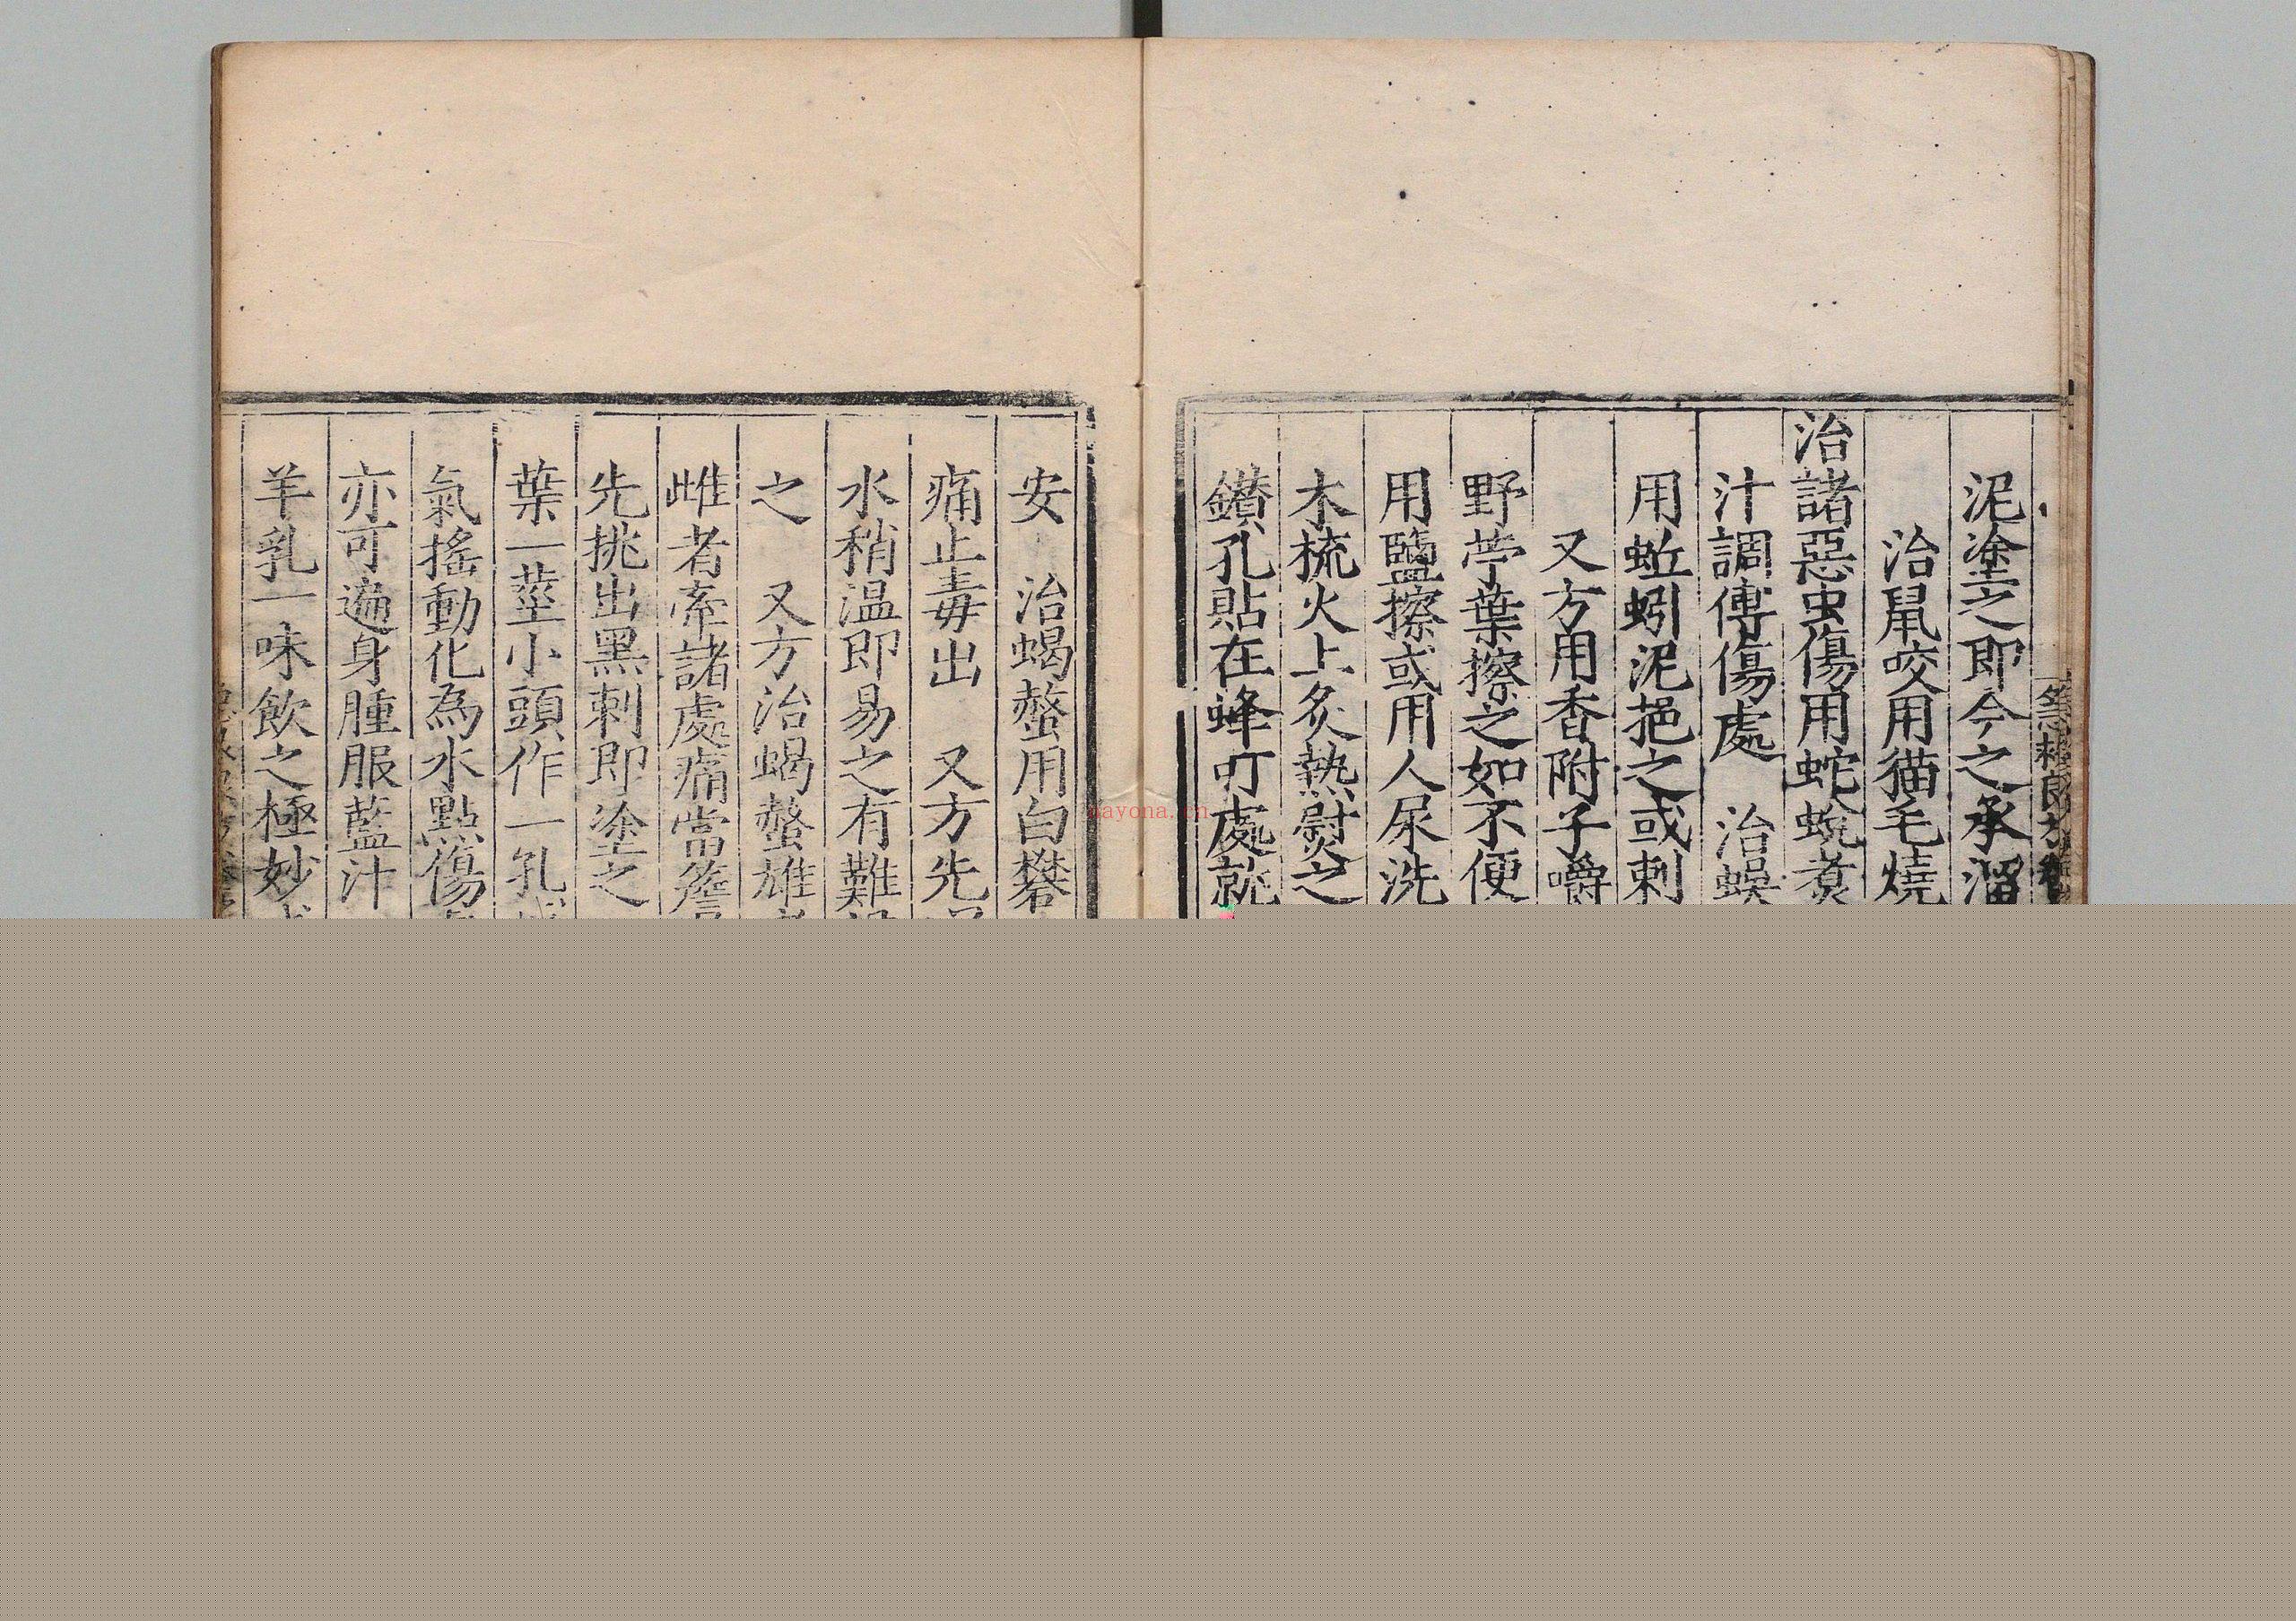 泥塗之即今之承溜
治鼠咬用猫毛燒
治諸惡虫傷用蛇蛻煮
汁調傅傷處　治蜈
用蚯蚓泥挹之或刺
又方用香附子嚼
野苧葉擦之如不便
用鹽擦或用人尿洗
木梳火上炙熱熨之
鑚孔貼在蜂叮處就
安　治蝎螫用白礬
痛止毒出　又方先
水稍温即易之有難
之　又方治蝎螫雄
雌者牽諸處痛當簷
先挑出黑刺即塗之
葉一莖小頭作一孔
氣搖動化為水點傷
亦可遍身腫服藍汁
羊乳一味飲之極妙
nayona.cn